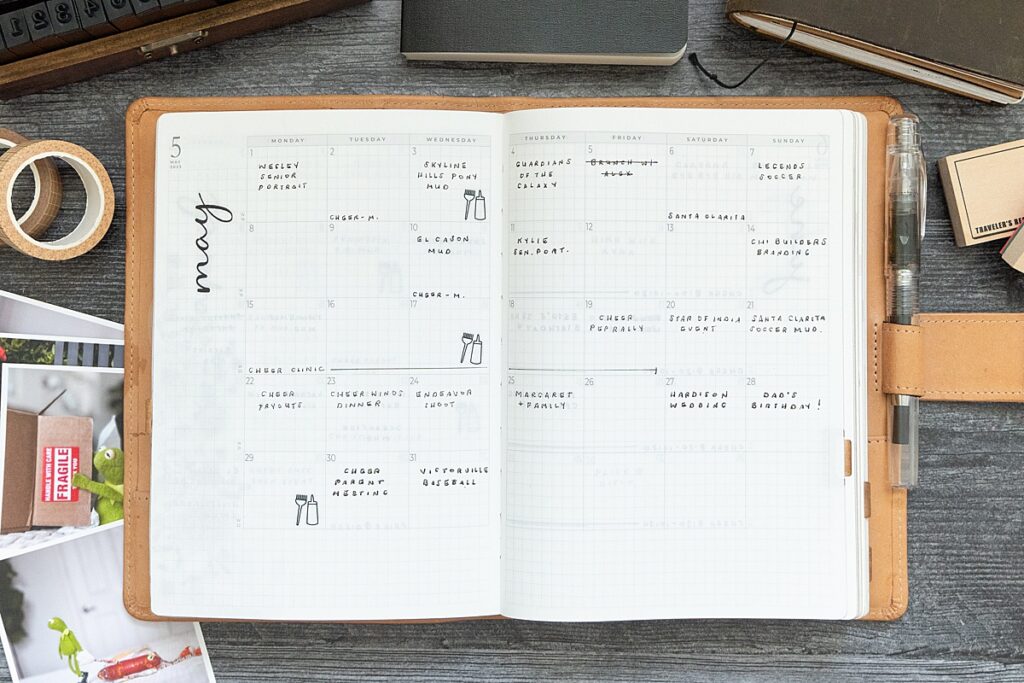 5
MAY
may
MONDAY TUESDAY WEDNESDAY THURSDAY FRIDAY SATURDAY SUNDAY
1 2 3 4 5 6 7
WESLEY
SENIOR
PORTRAIT
CHEER-M.
SKYLINE
HILLS PONY
MUD
GUARDIANS
OF THE
GALAXY
BRUNCH W/
ALEX
SANTA CLARITA
LEGENDS
SOCCER
8 9 10 11 12 13 14
EL CAJON
MUD
CHEER-M.
KYLIE
SEN. PORT.
CHI BUILDERS
BRANDING
15 16 17 18 19 20 21
CHEER CLINIC
CHEER
PEP RALLY
STAR OF INDIA
EVENT
SANTA CLARITA
SOCCER MUD.
22 23 24 25 26 27 28
CHEER
TRYOUTS
CHEERWINDS
DINNER
ENDEAVOR
SHOOT
MARGARET
+ FAMILY
HARDISON
WEDDING
DAD'S
BIRTHDAY!
29 30 31
CHEER
PARENT
MEETING
VICTORVILLE
BASEBALL
HANDLE WITH CARE
FRAGILE
THANK YOU